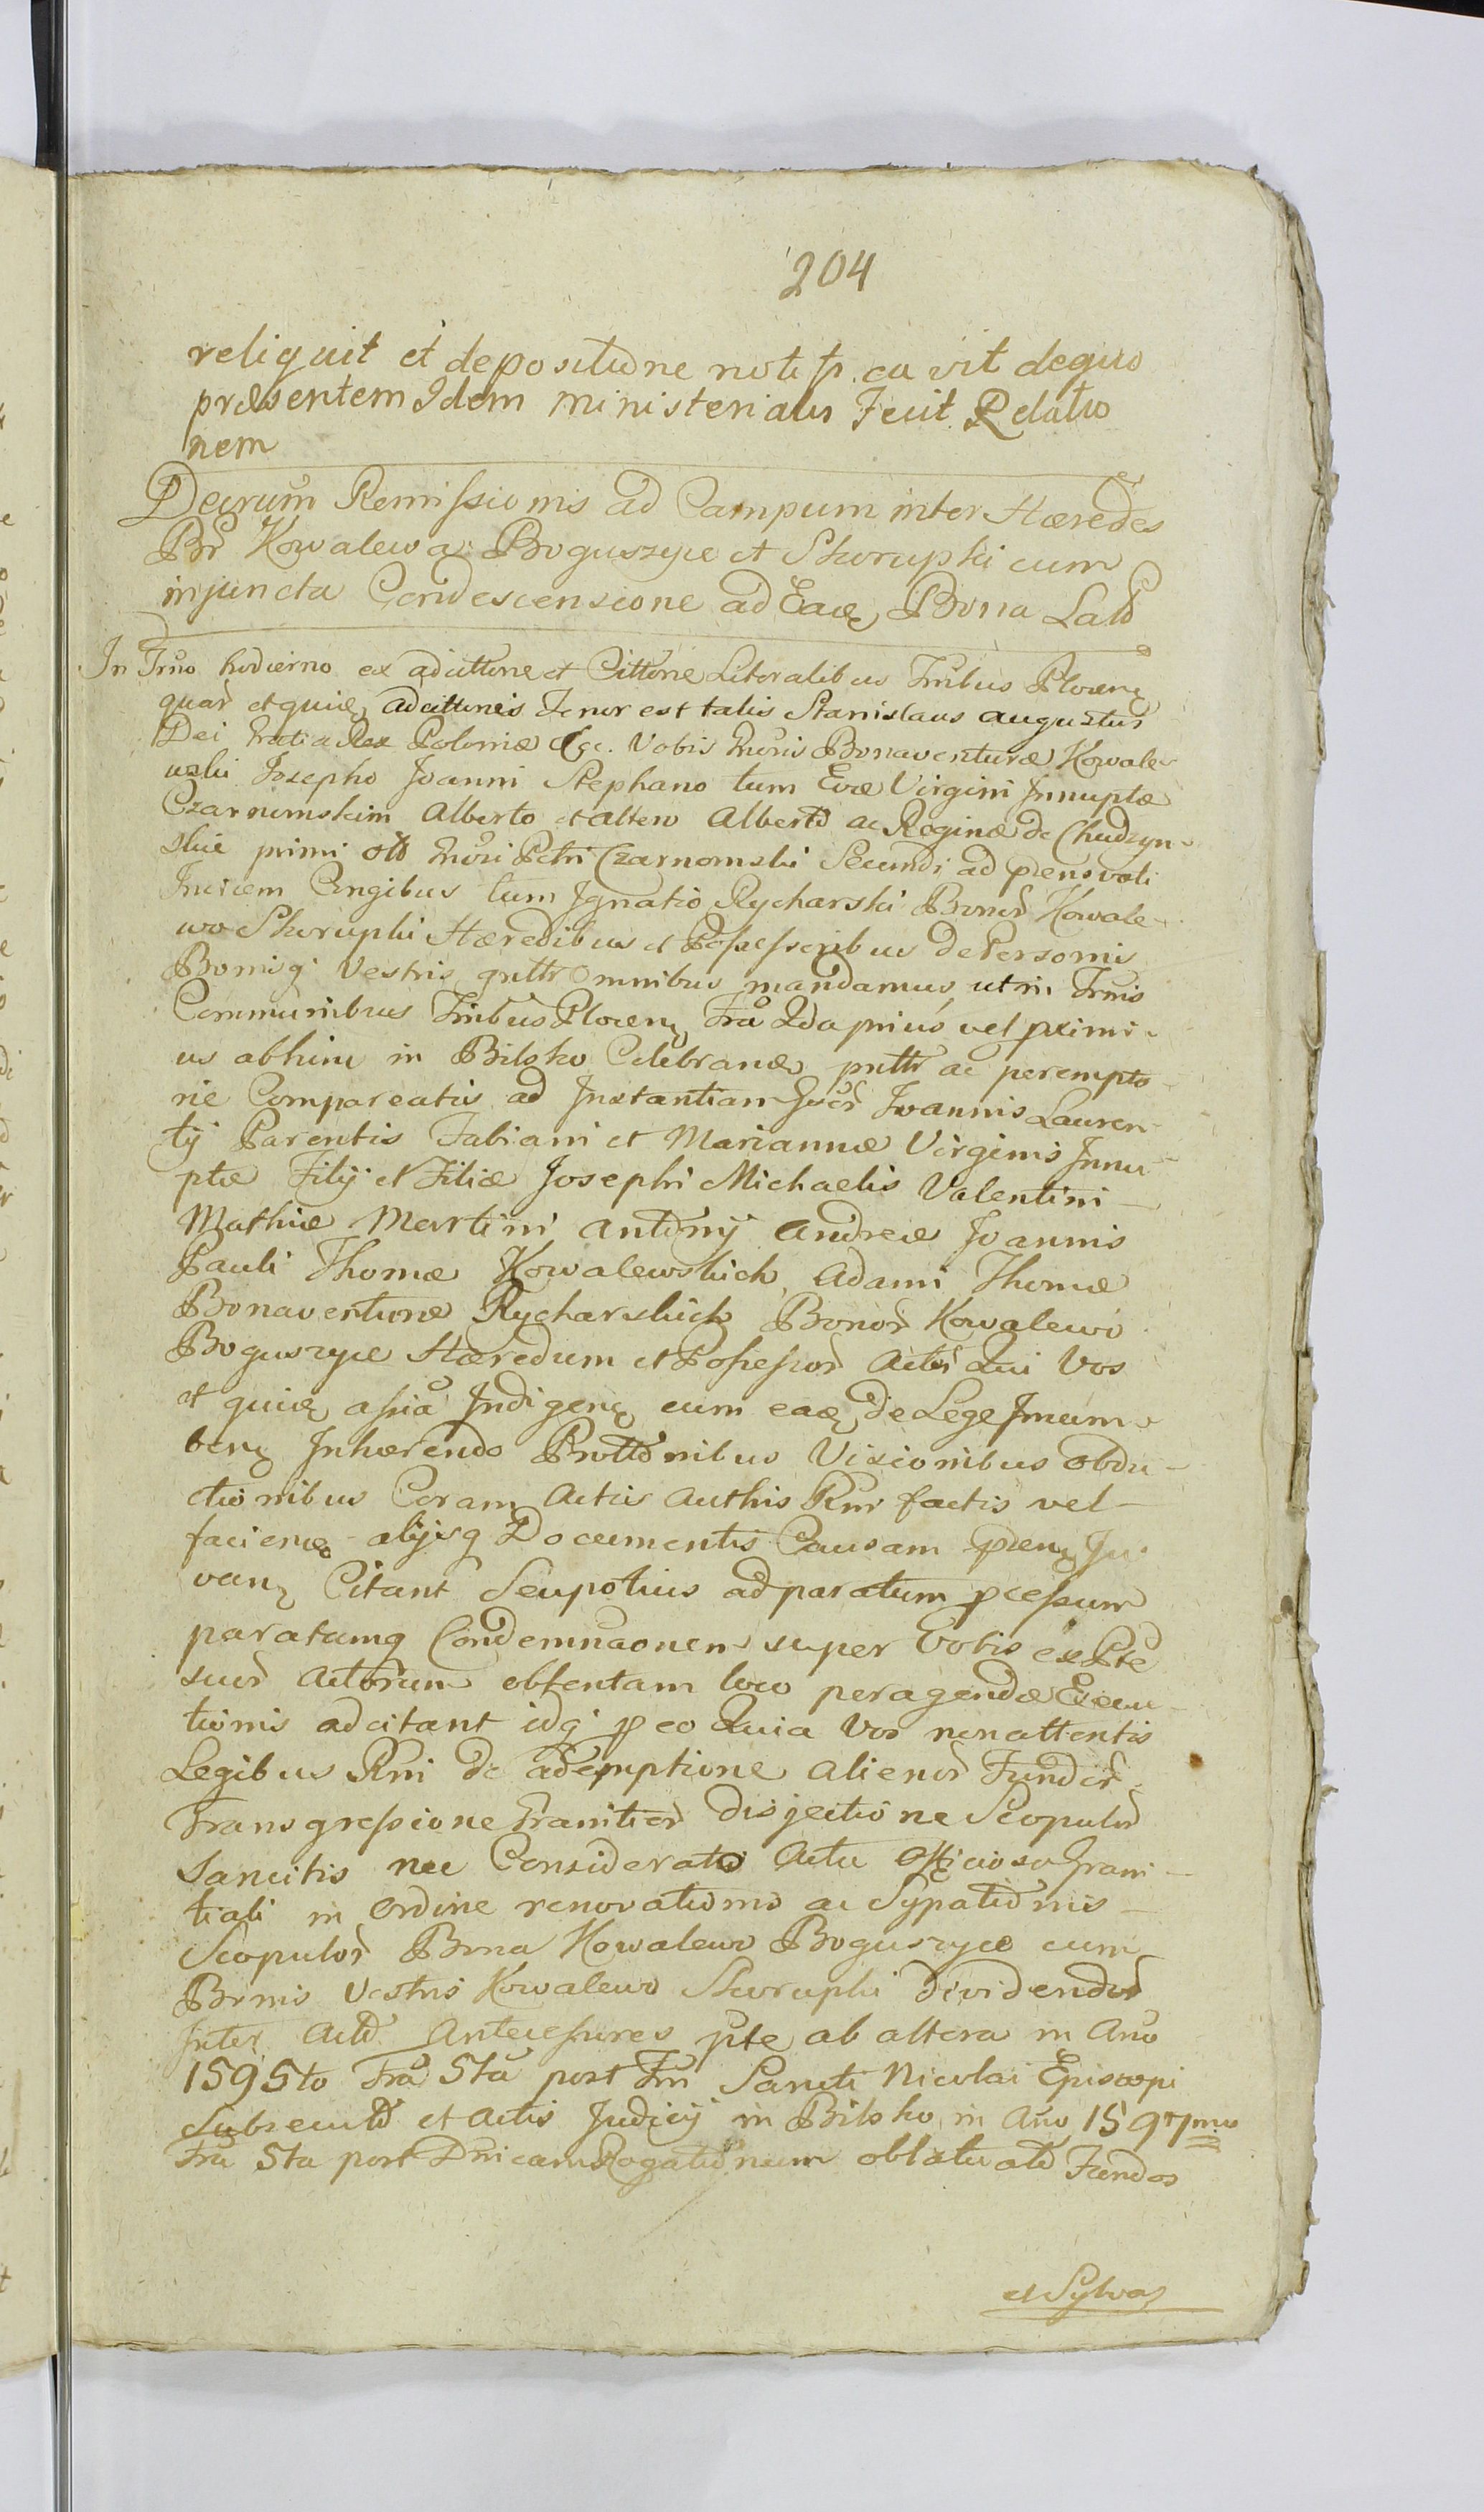 204
reliquit et depositione notificavit de quo
præsentem Idem ministerialis Fecit Relatio
nem
Decrum Remissionis ad Campum inter Hæredes
Bor Kowalewa Boguszyce et Skorupki cum
injuncta Condescensione ad Eade Bona Lato
In Trno hodierno ex adcittone et Cittone Literalibus Trnbus Plocen
quar et quide adcittonis Tenor est talis Stanislaus augustus
Dei Gratia Rex Poloniæ &c. Vobis Gnosis Bonaventuræ Kowale-
wski Josepho Joanni Stephano tum Evæ Virgini Innuptæ
Czarnomskim Alberto et altero Alberto ac Reginæ de Chudzyn-
skie primi olo Gnosi Petri Czarnomski Secundi ad præns voti
Invicem Congibus tum Ignatio Rycharski Bonor Kowale-
wo Skorupki Hæredibus et Possessoribus de Personis
Bonisq Vestris gnttr Omnibus mandamus ut in Trnis
Communibus Trnbus Plocen Fra 2da prius vel proximi-
us abhinc in Bilsko Celebran pnttr ac perempto
rie Compareatis ad Instantiam Gnosor Joannis Lauren-
tij Parentis Fabiani et Mariannæ Virginis Innu-
ptæ Filij et Filiæ Josephi Michaelis Valentini
Mathiæ Martini Antonij Andreæ Joannis
Pauli Thomæ Kowalewskich, Adami Thomæ
Bonaventuræ Rycharskich Bonor Kowalewo
Boguszyce Hæredum et Possessor Actor Qui Vos
et quide assia Indigen cum eade de Lege Incum-
ben Inhærendo Prottonibus Visionibus obdu-
ctionibus Coram Actis Authis Rni factis vel
facien alijsq Documentis Causam præn Ju-
van Citant Seu potius ad paratum processum
paratamq Condemnaonem super Vobis ex Pte
suor Actorum obtentam loco peragendæ Execu-
tionis adcitant idq pro eo Quia Vos non attentis
Legibus Rni de ademptione alienor Fundor
Transgressione Granitier disjectione Scopulor
Sancitis nec Considerato Actu Officioso Grani-
tiali in Ordine renovationis ac Sypationis
Scopulor Bona Kowalewo Boguszyce cum
Bonis Vestris Kowalewo Skorupki Dividendor
Inter Actor Antecessores pte ab altera in Ano
1595to Fra 5ta post Fm Sancti Nicolai Episcopi
Subsecuto et Actis Judicij in Bilsko in Ano 1597mo
Fra 5ta post Dnicam Rogationum oblatu ato Fundos
et Sylvas